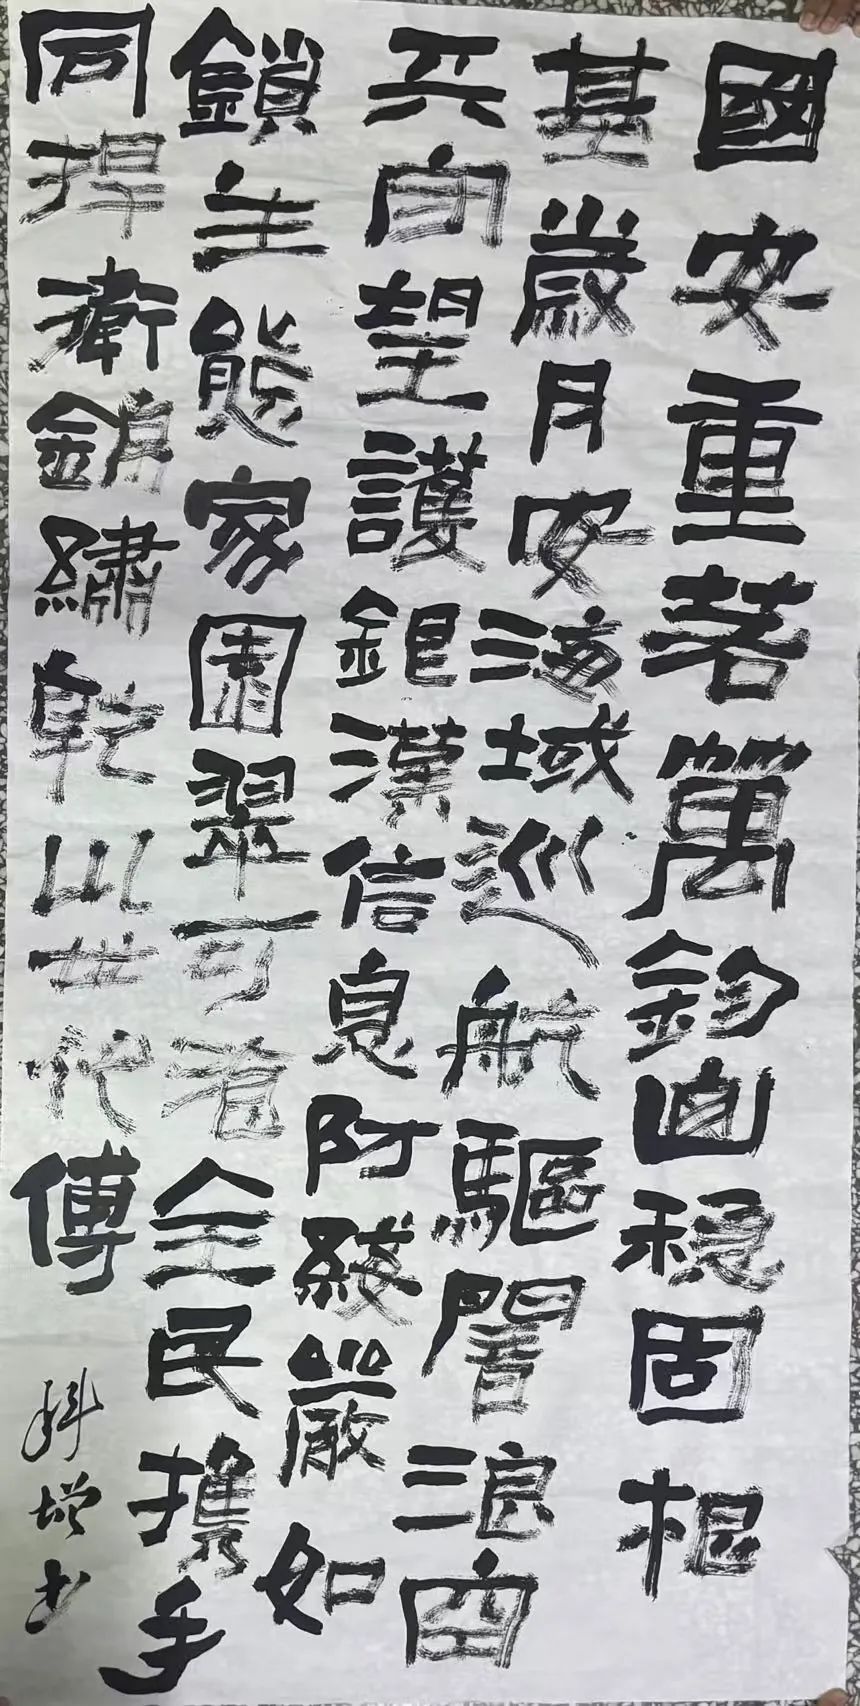 國安重若萬鈞山稳固根
基歲月安海域巡航驅闇浪空
天守望護銀漢信息防綫嚴如
鎖生態家園翠可滴全民携手
同捍衛錦繡乾坤世代傳
科增书